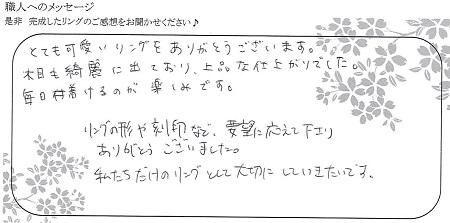 職人へのメッセージ
是非 完成したリングのご感想をお聞かせください♪
とても可愛いリングをありがとうございます。
木目も綺麗に出ており、上品な仕上がりでした。
毎日付けるのが楽しみです。
リングの形や刻印など、要望に応えて下さり
ありがとうございました。
私たちだけのリングとして大切にしていきたいです。